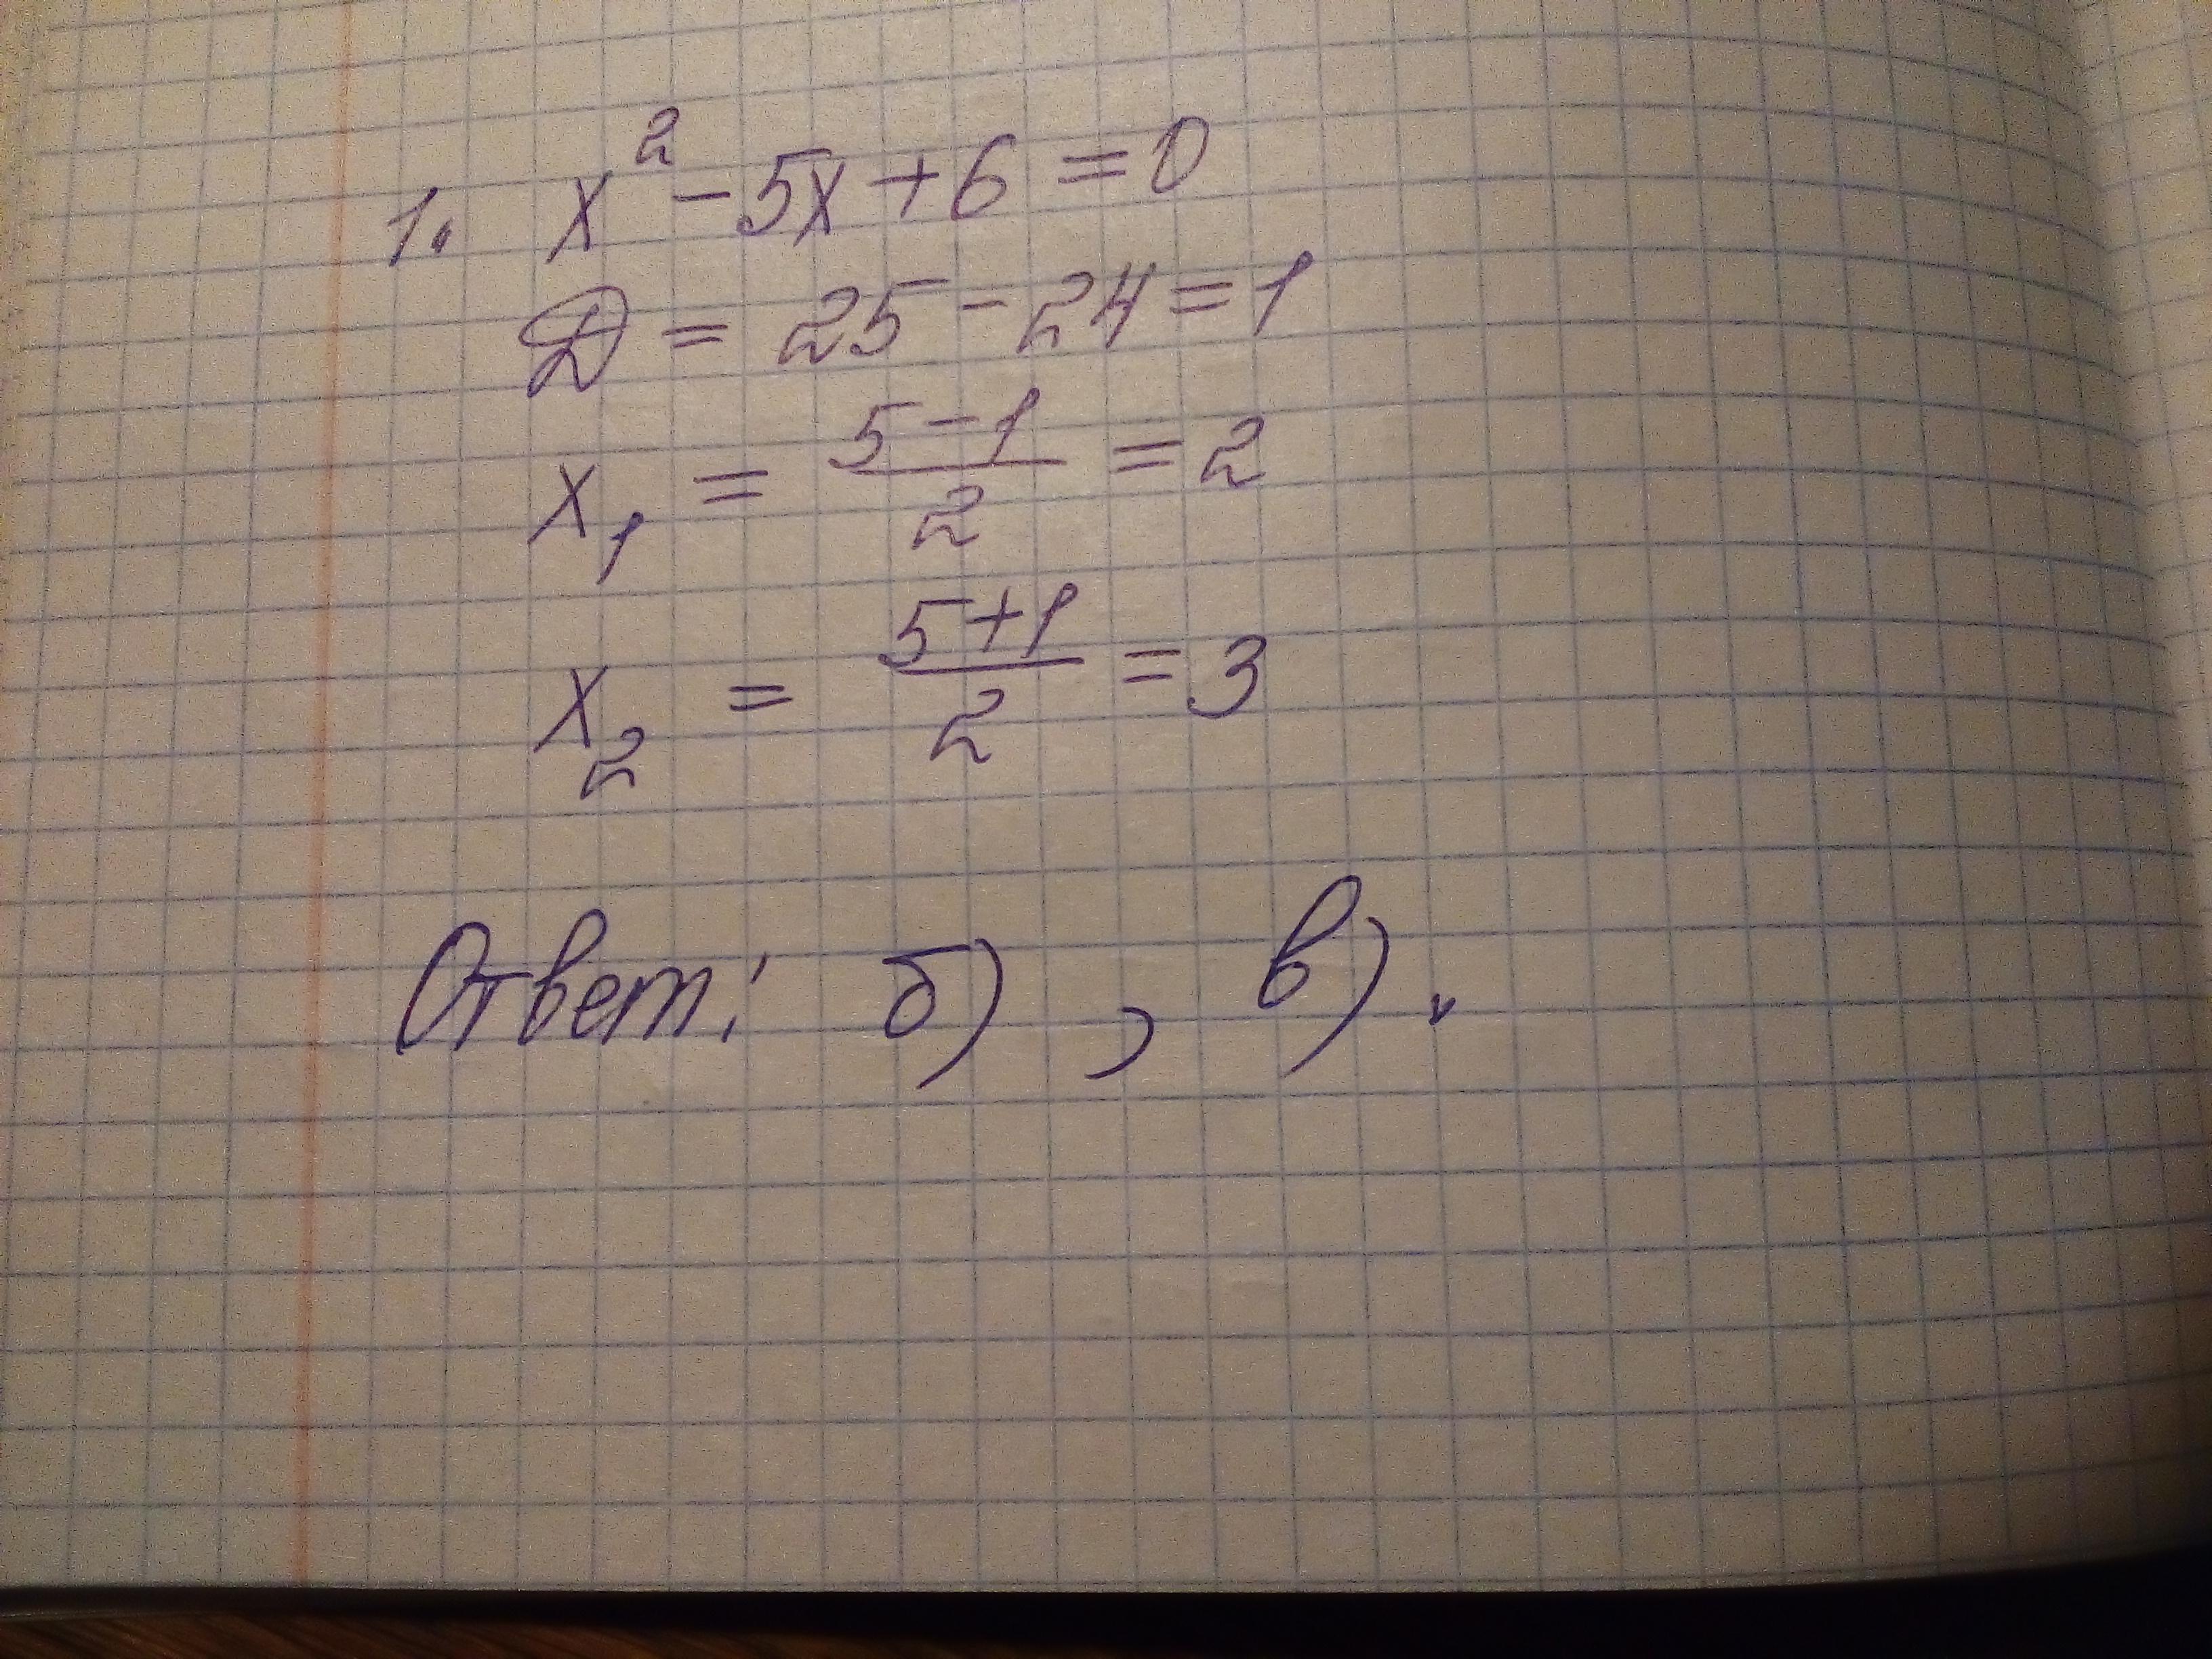 1. x² - 5x + 6 = 0
D = 25 - 24 = 1
x₁ = (5 - 1)/2 = 2
x₂ = (5 + 1)/2 = 3
Ответ: б) , в) .